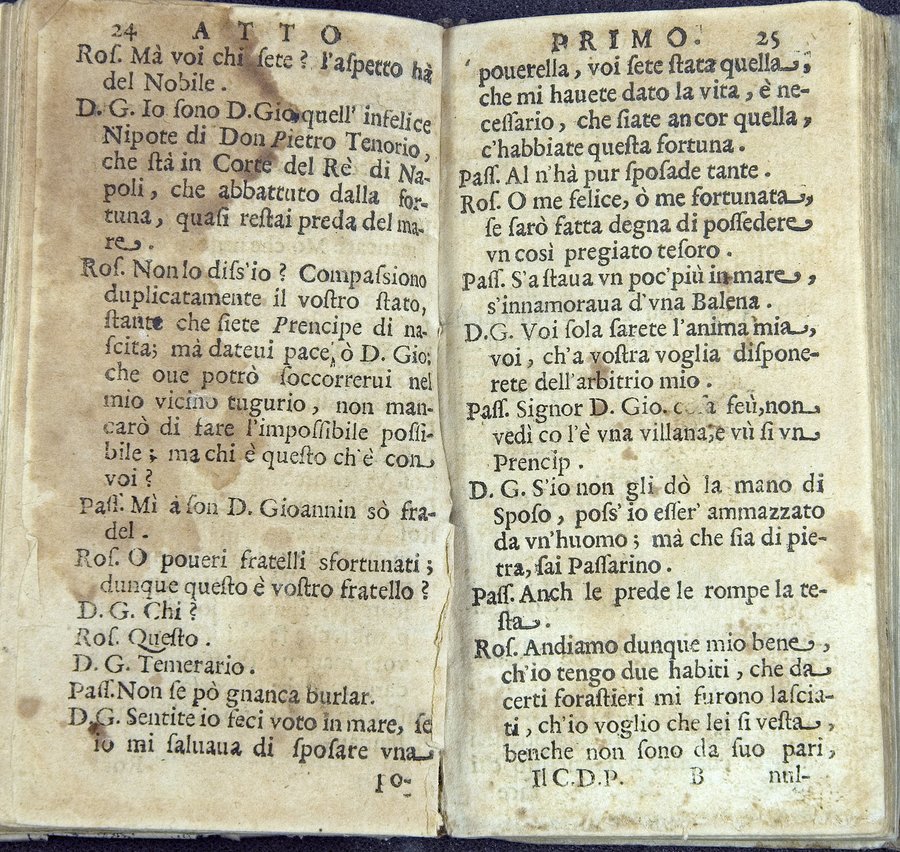 24 ATTO
Roſ. Mà voi chi ſete ? l'aſpetto hà
del Nobile .
D. G. Io ſono D.Gio, quell' infelice
Nipote di Don Pietro Tenorio,
che ſtà in Corte del Rè di Na-
poli, che abbattuto dalla for-
tuna, quaſi reſtai preda del ma-
re .
Roſ. Non lo diſs'io ? Compaſsiono
duplicatamente il voſtro ſtato,
ſtante che ſiete Prencipe di na-
ſcita; mà dateui pace, ò D. Gio:
che oue potrò ſoccorrerui nel
mio vicino tugurio , non man-
carò di fare l'impoſſibile poſſi-
bile ; ma chi è queſto ch'è con
voi ?
Paſſ. Mì à ſon D. Gioannin sò fra-
del .
Roſ. O poueri fratelli sfortunati ;
dunque queſto è voſtro fratello ?
D. G. Chi ?
Roſ. Queſto .
D. G. Temerario .
Paſſ. Non ſe pò gnanca burlar.
D.G. Sentite io feci voto in mare, ſe
io mi ſaluaua di ſpoſare vna
po-
PRIMO. 25
pouerella , voi ſete ſtata quella ,
che mi hauete dato la vita , è ne-
ceſſario , che ſiate ancor quella ,
c'habbiate queſta fortuna .
Paſſ. Al n'hà pur ſpoſade tante .
Roſ. O me felice, ò me fortunata ,
ſe ſarò fatta degna di poſſedere
vn così pregiato teſoro .
Paſſ. S'a ſtaua vn poc'più in mare ,
s'innamoraua d'vna Balena .
D.G. Voi ſola ſarete l'anima mia ,
voi , ch'a voſtra voglia diſpone-
rete dell'arbitrio mio .
Paſſ. Signor D. Gio. coſa feù, non
vedì co l'è vna villana, e vù ſi vn
Prencip .
D. G. S'io non gli dò la mano di
Spoſo , poſs' io eſſer' ammazzato
da vn'huomo ; mà che ſia di pie-
tra, ſai Paſſarino .
Paſſ. Anch le prede le rompe la te-
ſta .
Roſ. Andiamo dunque mio bene ,
ch'io tengo due habiti , che da
certi foraſtieri mi furono laſcia-
ti , ch'io voglio che lei ſi veſta ,
benche non ſono da ſuo pari,
Il C.D.P. B nul-